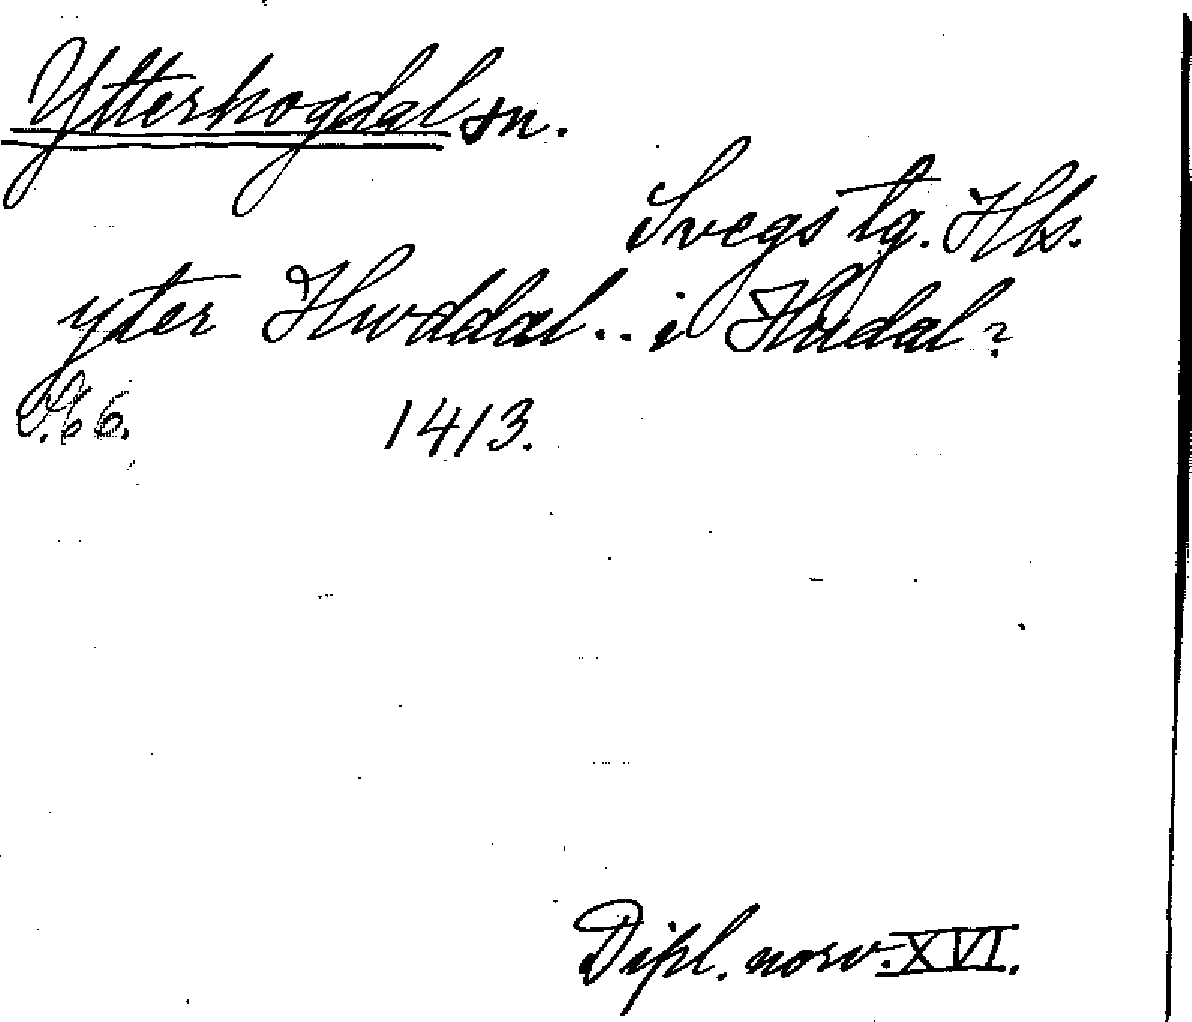 Ytterhogdal sn.
Svegs tg. Hls.
yter Hwddal.. i Hudal?
S. 66. 1413.
Dipl. norv. XVI.